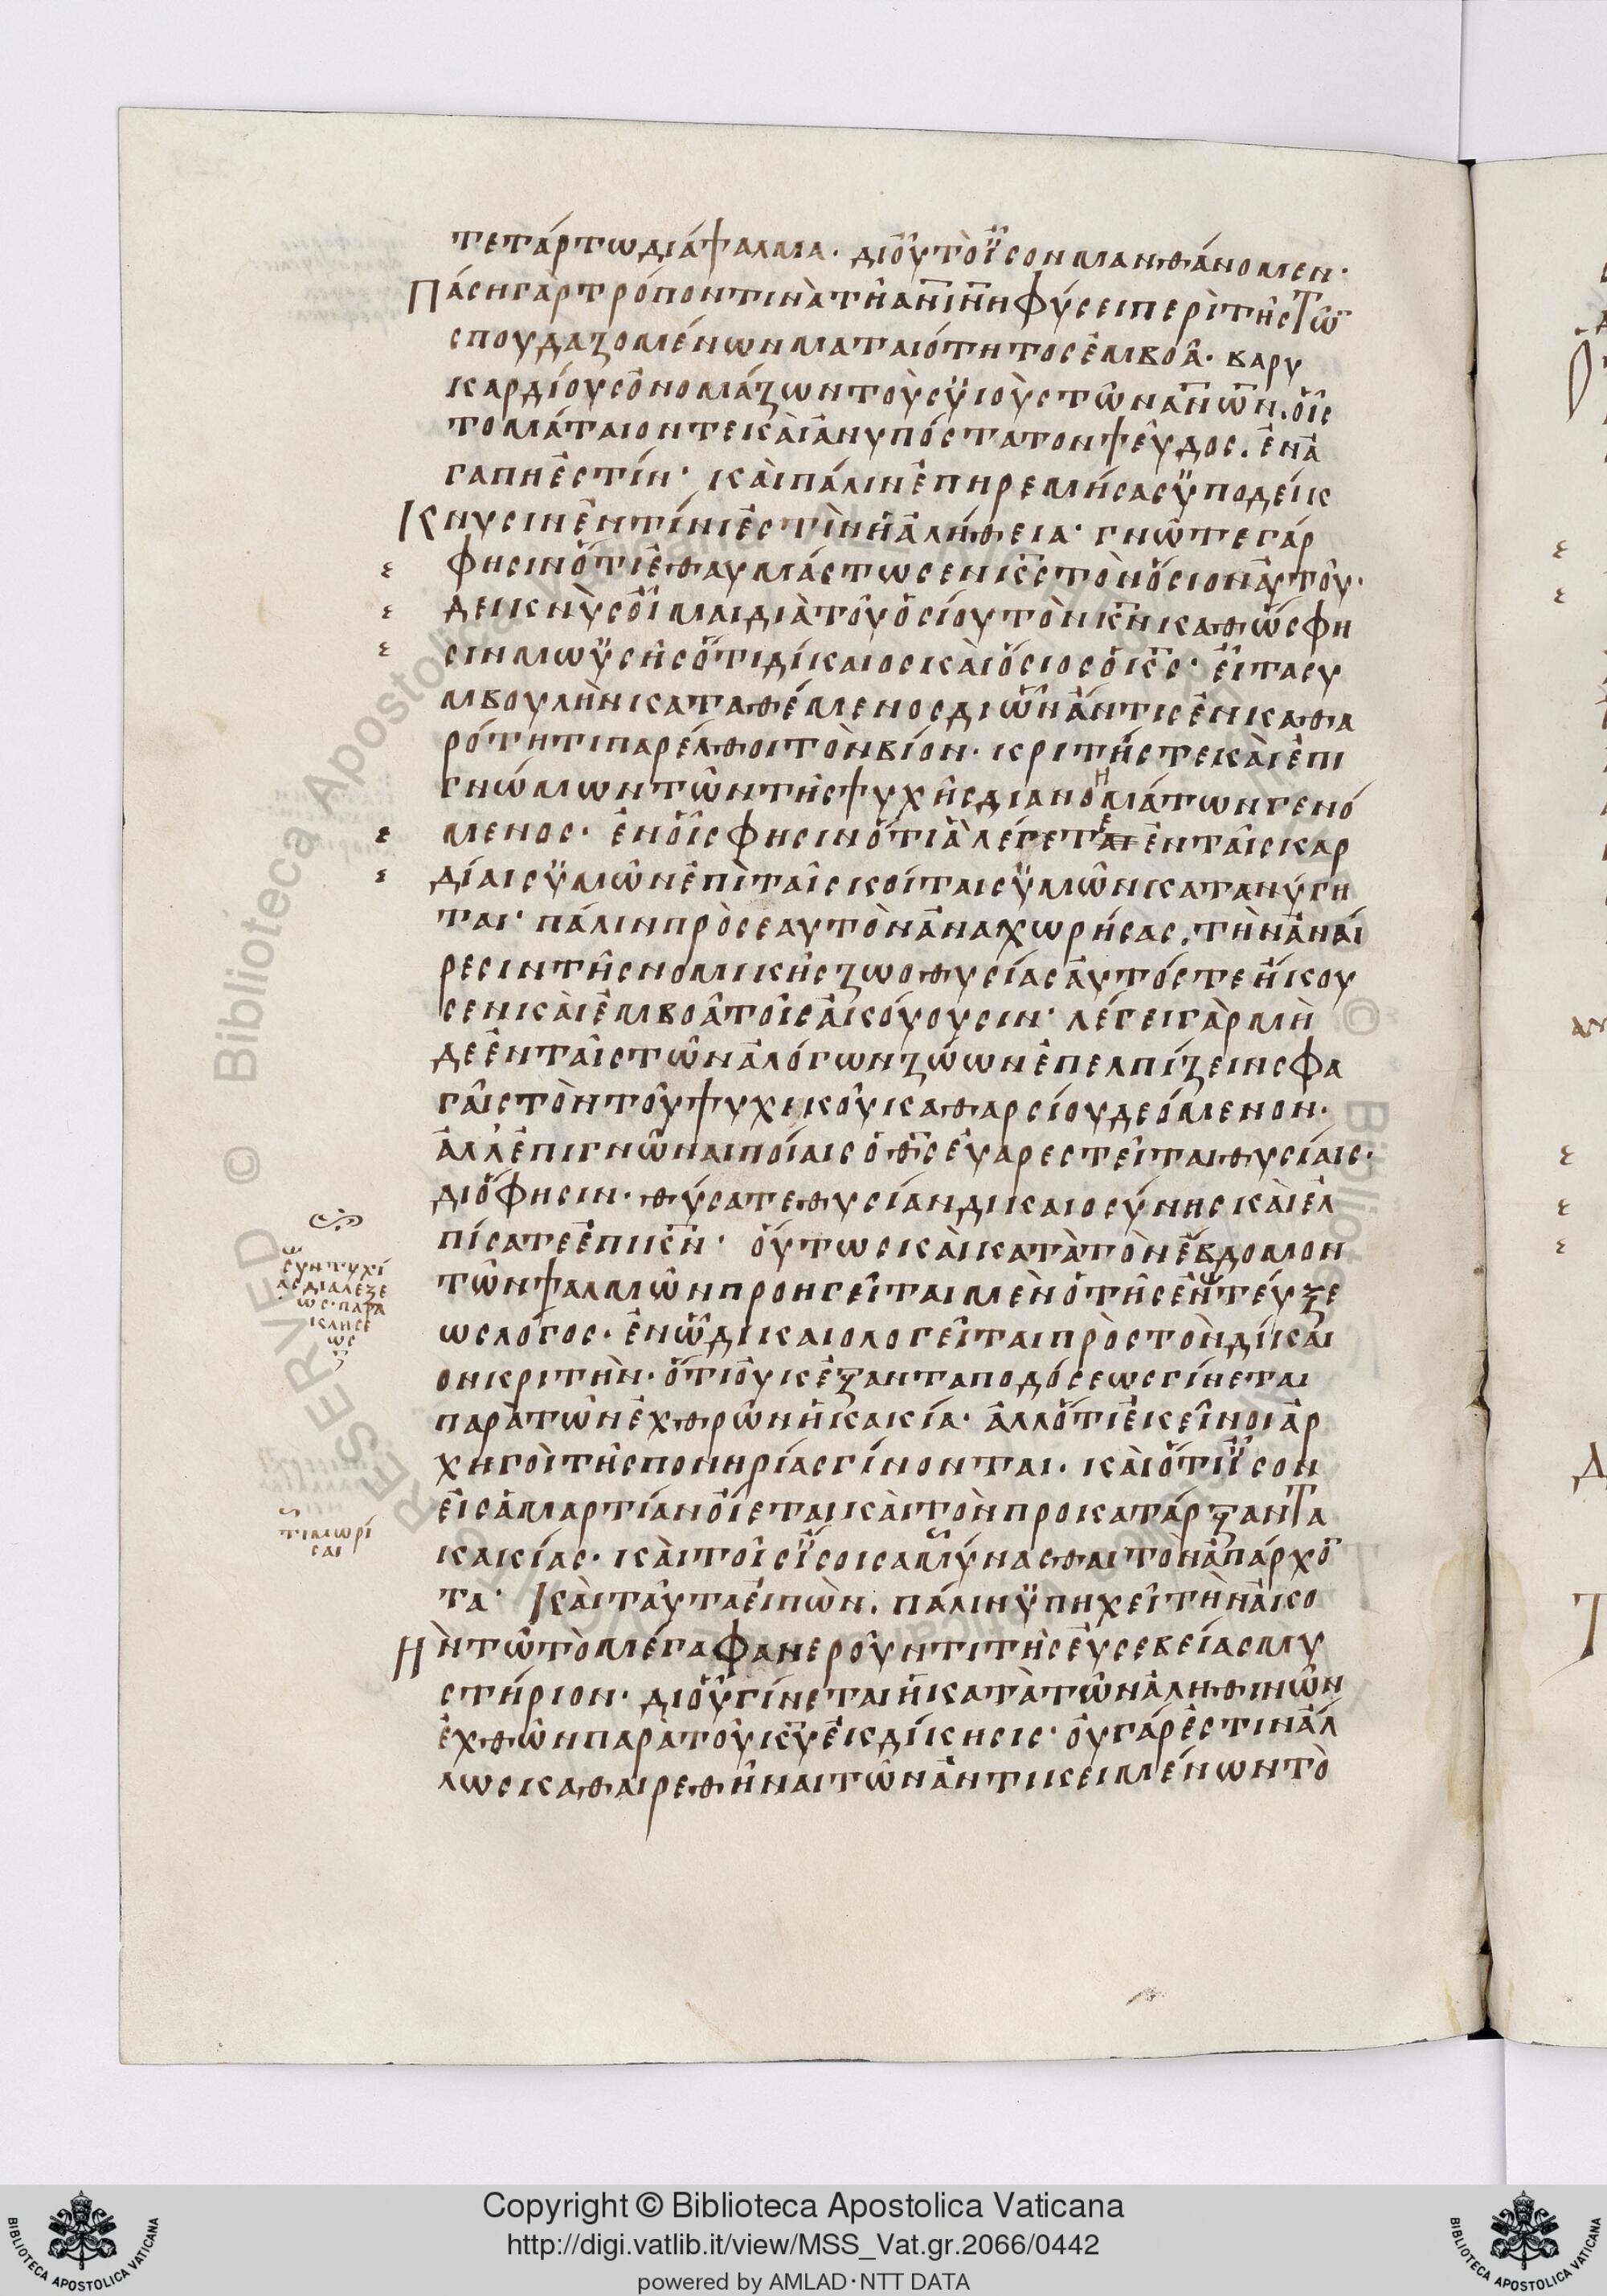 τετάρτω διάψαλμα· δι οὗ τὸ ἴσον μανθάνομεν·
Πάση γὰρ τρόπον τινὰ τῆ ανινη φύσει περὶ τῆς τῶ
σπουδαζομένων ματαιότητος ἐμβοᾶ· βαρυ
καρδίους ὀνομάζων τοὺς υἱοὺς τῶν ανων· οἷς
το μάταιόν τε καὶ ἀνυπόστατον ψεῦδος. ἐν ἀ
γάπη ἐστίν· καὶ πάλιν ἐπηρεμήσας ὑποδείκ
Κνυσιν ἐν τίνι ἐστὶν ἡ ἀλήθεια· γνῶτε γάρ
φησιν ὅτι ἐθαυμάστωσεν κς τὸν ὅσιον αὐτοῦ·
δεικνὺς οἶμαι διὰ τοῦ ὁσίου τὸν κν καθώς φη
σιν μωϋσῆς ὅτι δίκαιος καὶ ὅσιος ὁ κς· εἶτα συ
μβουλὴν καταθέμενος δι ὧν ἄν τις ἐν καθα
ρότητι παρέλθοι τὸν βίον· κριτής τε καὶ ἐπι
γνώμων τῶν τῆς ψυχῆς διανοημάτων γενό
μενος· ἐν οἷς φησιν ὅτι ἃ λέγετε ἐν ταῖς καρ
δίαις ὑμῶν ἐπὶ ταῖς κοίταις ὑμῶν κατανύγη
ται· πάλιν πρὸς ἑαυτὸν ἀναχωρήσας. τὴν ἀναί
ρεσιν τῆς νομικῆς ζωοθυσίας αὐτός τε ἤκου
σεν καὶ ἐμβοᾶ τοῖς ἀκούουσιν· λέγει γὰρ μὴ
δε ἐν ταῖς τῶν ἀλόγων ζώων ἐπελπίζειν σφα
γαῖς τὸν τοῦ ψυχικοῦ καθαρσίου δεόμενον·
ἀλλ' ἐπιγνῶναι ποίαις ὁ θς εὐαρεστεῖται θυσίαις·
διό φησιν· θύσατε θυσίαν δικαιοσύνης καὶ ἐλ
πίσατε ἐπι κν· οὕτως καὶ κατὰ τὸν ἕβδομον
τῶν ψαλμῶν προηγεῖται μὲν ὁ τῆς ἐντεύξε
ως λόγος· ἐν ὧ δικαιολογεῖται πρὸς τὸν δίκαι
ον κριτὴν· ὅτι οὐκ ἐξ ανταποδόσεως γίνεται
παρὰ τῶν ἐχθρῶν ἡ κακία· ἀλλ ὅτι ἐκεῖνοι ἀρ
χηγοὶ τῆς πονηρίας γίνονται· καὶ ὅτι ἴσον
εἰς ἁμαρτίαν οἴεται καὶ τὸν προκατάρξαντα
κακίας· καὶ τοῖς ἴσοις αμύνασθαι τὸν ἀπάρχο
τα· Καὶ ταῦτα εἰπὼν. πάλιν ὑπηχεῖ τὴν ἀκο
Ηὴν τῶ τὸ μέγα φανεροῦντι τῆς εὐσεβείας μυ
στήριον· δι οὗ γίνεται ἡ κατὰ τῶν ἀληθινῶν
ἐχθῶν παρὰ τοῦ κυ ἐκδίκησις· οὐ γάρ ἐστιν ἀλ
λως καθαιρεθῆναι τῶν ἀντικειμένων τὸ
συντυχί
ας διαλέξε
ως· παρα
κλησε
ως
τιμωρῖ
σαι
Copyright © Biblioteca Apostolica Vaticana
http://digi.vatlib.it/view/MSS_Vat.gr.2066/0442
powered by AMLAD·NTT DATA